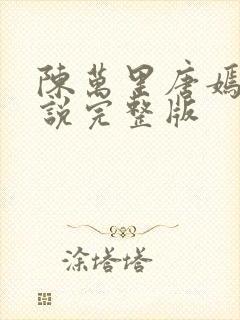 陳萬里唐嫣
說完整版
涂塔塔